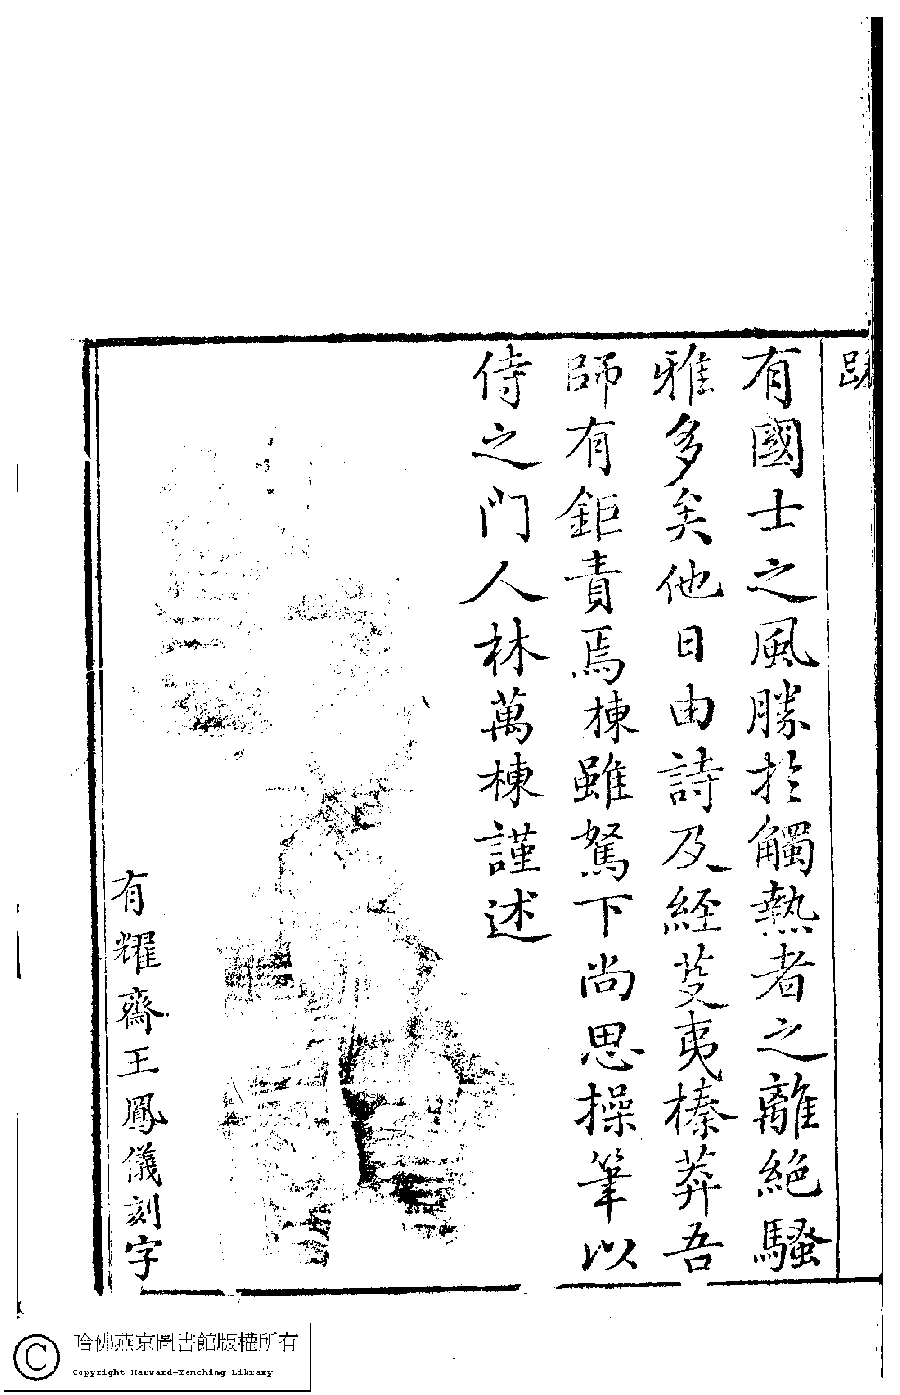 跋
有國士之風勝於觸熱者之離絶騷
雅多矣他日由詩及經芟夷榛莽吾
師有鉅責焉棟雖駑下尚思操筆以
侍之門人林萬棟謹述
有耀齋王鳳儀刻字
哈佛燕京圖書館版權所有
Copyright Harvard-Yenching Library